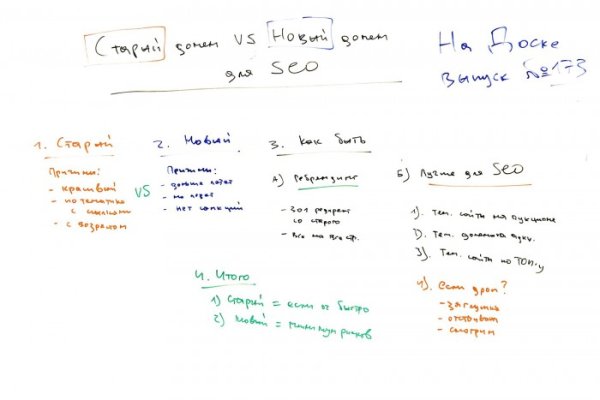 Старый домен VS Новый домен
для SEO
На Доске
выпуск №173
1. Старый
Причины:
- красивый
- по тематике
с ссылками
- с возрастом
VS
2. Новый
Причины:
- дольше
- нет санкций
3. Как быть
А) Ребрендинг
- 301 редирект
со старого
- все на все стр.
Б) Лучше для SEO
1). Тем. сайты на аукционе
2). Тем. домены на аукц.
3). Тем. сайты по ТОП-у
4). если дроп?
- заглушка
- отстоять
- смотрим
4. Итого
1) Старый = если ок быстро
2) Новый = минимум рисков